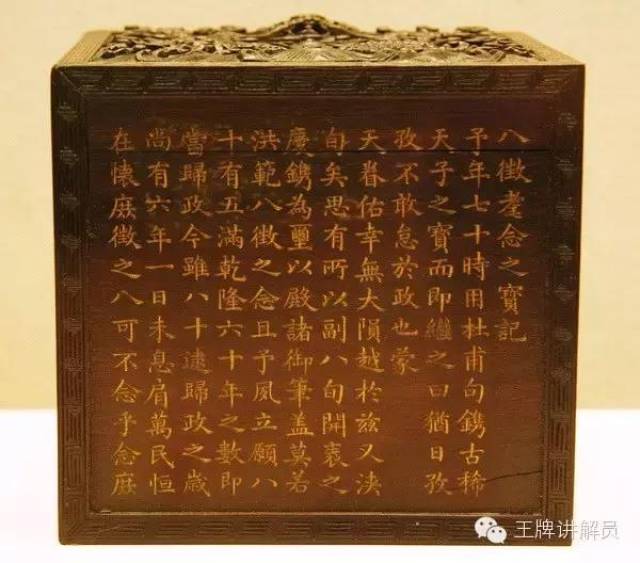 八徵耄念之寶記
予年七十時用杜甫句鐫古稀
天子之寶而即繼之曰猶日孜
孜不敢怠於政也蒙
天眷佑幸無大隕越於兹又浹
旬矣思有所以副八旬開袠之
慶鐫為璽以殿諸御筆蓋莫若
洪範八徵之念且予夙立願八
十有五滿乾隆六十年之數即
當歸政今雖八十逮歸政之歲
尚有六年一日未息肩萬民恒
在懷庶徵之八可不念乎念庶
王牌讲解员